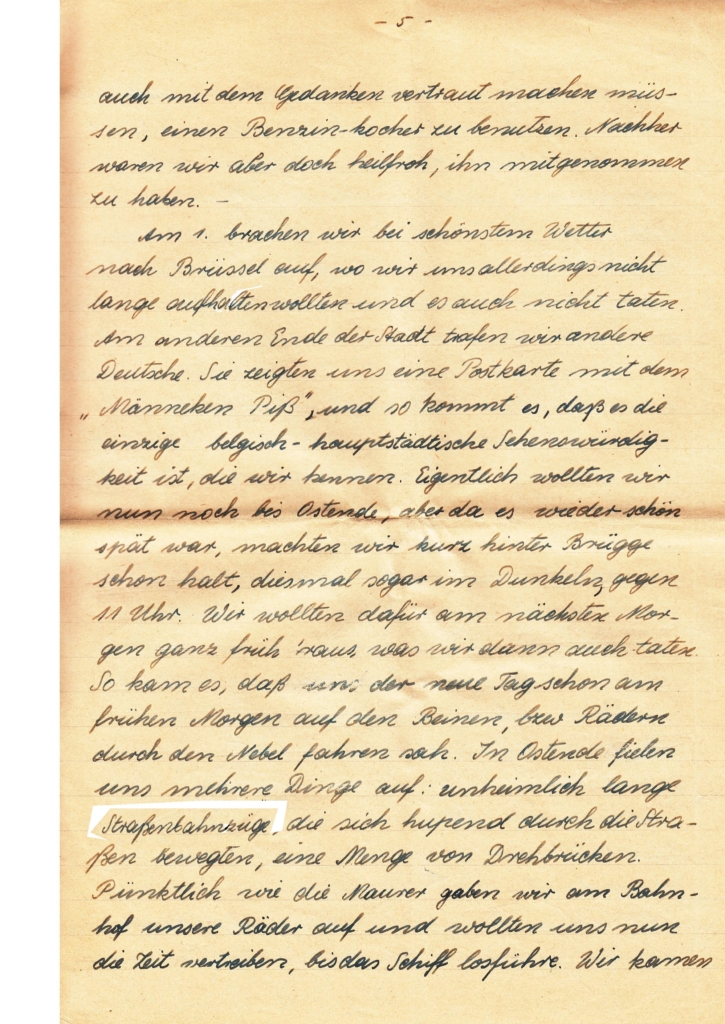 - 5 -
auch mit dem Gedanken vertraut machen müs-
sen, einen Benzin-kocher zu benutzen. Nachher
waren wir aber doch heilfroh, ihn mitgenommen
zu haben. -
Am 1. brachen wir bei schönstem Wetter
nach Brüssel auf, wo wir uns allerdings nicht
lange aufhalten wollten und es auch nicht taten.
Am anderen Ende der Stadt trafen wir andere
Deutsche. Sie zeigten uns eine Postkarte mit dem
„Männeken Piß", und so kommt es, daß es die
einzige belgisch-hauptstädtische Sehenswürdig-
keit ist, die wir kennen. Eigentlich wollten wir
nun noch bis Ostende, aber da es wieder schön
spät war, machten wir kurz hinter Brügge
schon halt, diesmal sogar im Dunkeln, gegen
11 Uhr. Wir wollten dafür am nächsten Mor-
gen ganz früh 'raus, was wir dann auch taten.
So kam es, daß uns der neue Tag schon am
frühen Morgen auf den Beinen, bzw Rädern
durch den Nebel fahren sah. In Ostende fielen
uns mehrere Dinge auf: unheimlich lange
Straßenbahnzüge, die sich hupend durch die Stra-
ßen bewegten, eine Menge von Drehbrücken.
Pünktlich wie die Maurer gaben wir am Bahn-
hof unsere Räder auf und wollten uns nun
die Zeit vertreiben, bis das Schiff losführe. Wir kamen